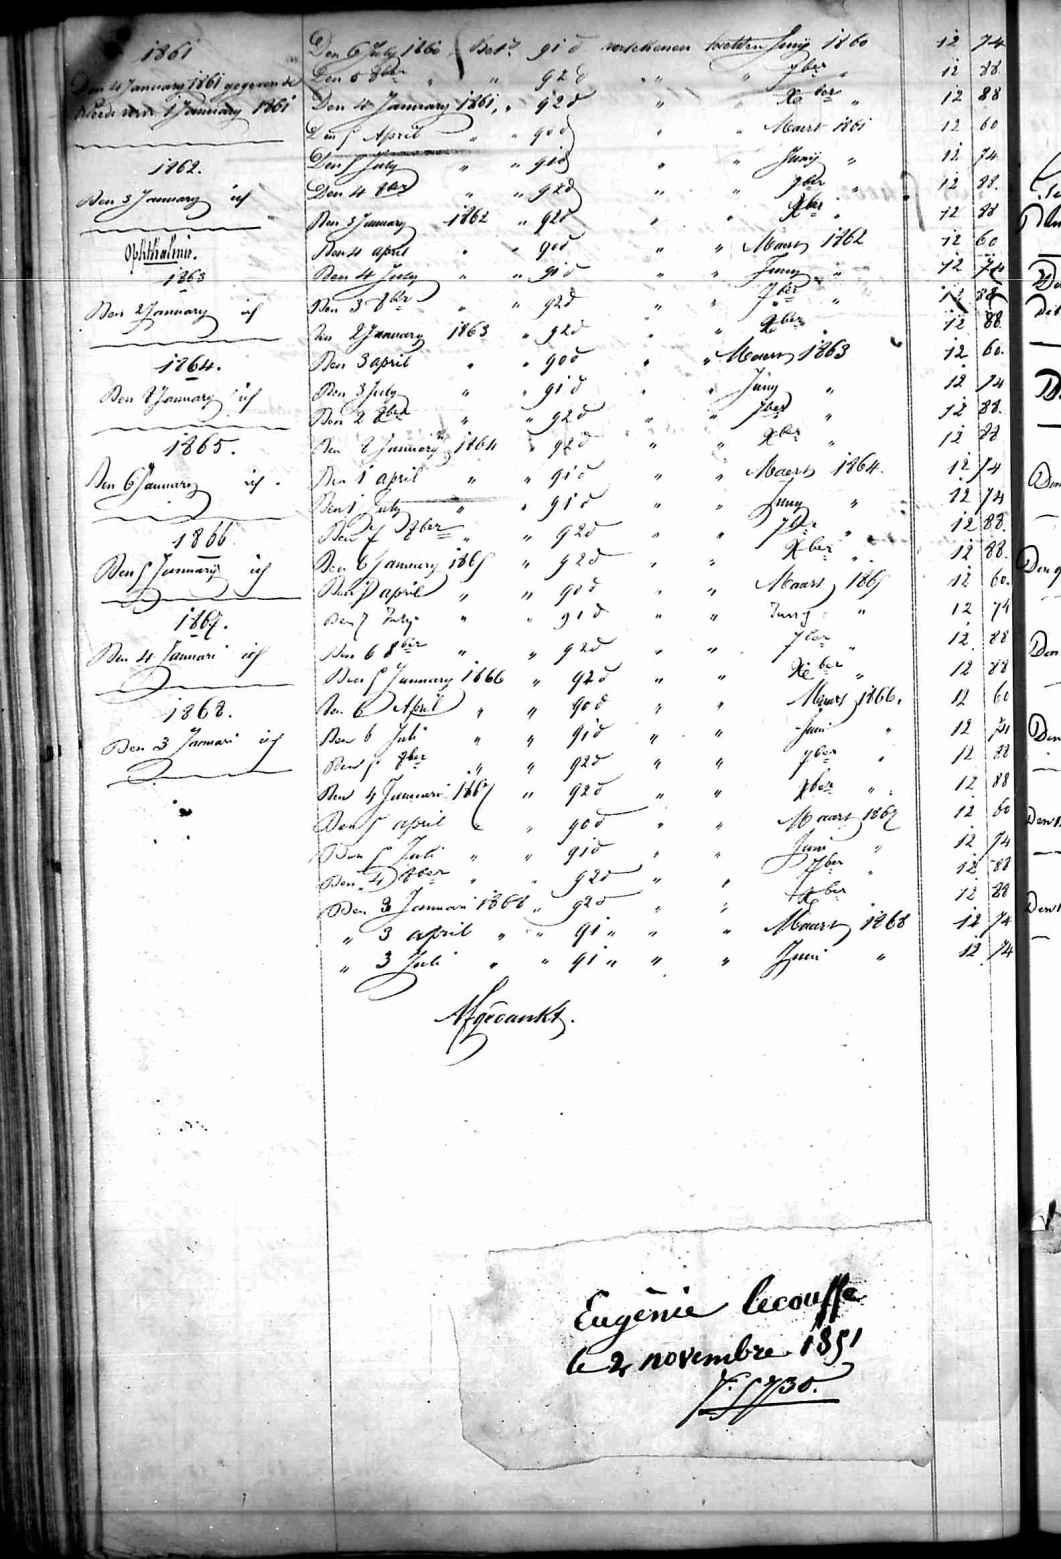 1861
Den 4 January 1861 gegeven de
1 January 1861
1862.
Den 3 January id
Ophthalmie.
1863
Den 2 January id
1864.
Den 2 January id
1865.
Den 6 January id.
1866
Den 5 January id
1867.
Den 4 Januari id
1868.
Den 3 Januari id
Den 6 July 1860 Bet. 91 d verschenen Juny 1860 12 74
Den 5 8ber " " 92 d " " 7ber " 12 88
Den 4 January 1861, " 92 d " " Xber " 12 88
Den 5 April " " 90 d " " Maart 1861 12 60
Den 5 July " " 91 d " " Junÿ " 12 74
Den 4 8ber " " 92 d " " 7ber " 12 88.
Den 3 January 1862 " 92 d " " Xber " 12 88
Den 4 april " " 90 d " " Maart 1862 12 60
Den 4 July " " 91 d " " Juny " 12 74
Den 3 8ber " " 92 d " " 7ber " 12 88
Den 2 January 1863 " 92 d " " Xber " 12 88
Den 3 april " " 90 d " " Maart 1863 12 60.
Den 3 July " " 91 d " " Juny " 12 74
Den 2 8ber " " 92 d " " 7ber " 12 88.
Den 2 January 1864 " 92 d " " Xber " 12 88
Den 1 april " " 91 d " " Maart 1864. 12 74
Den 1 July " " 91 d " " Juny " 12 74
Den 7 8ber " " 92 d " " 7ber " 12 88.
Den 6 January 1865 " 92 d " " Xber " 12 88.
Den 7 april " " 90 d " " Maart 1865 12 60.
Den 7 July " " 91 d " " Juny " 12 74
Den 6 8ber " " 92 d " " 7ber " 12 88
Den 5 January 1866 " 92 d " " Xber " 12 88
Den 6 April " " 90 d " " Maart 1866. 12 60
Den 6 Juli " " 91 d " " Juni " 12 74
Den 5 8ber " " 92 d " " 7ber " 12 88
Den 4 Januari 1867 " 92 d " " Xber " 12 88
Den 5 april " " 90 d " " Maart 1867 12 60
Den 5 Juli " " 91 d " " Juni " 12 74
Den 4 8ber " " 92 d " " 7ber " 12 88
Den 3 Januari 1868 " 92 d " " Xber 12 88
" 3 april " " 91 " " " Maart 1868 12 74
" 3 Juli " " 91 " " " Juni " 12 74
Afgedankt.
Eugènie Lecouffe
le 2 novembre 1851
f. 5730.